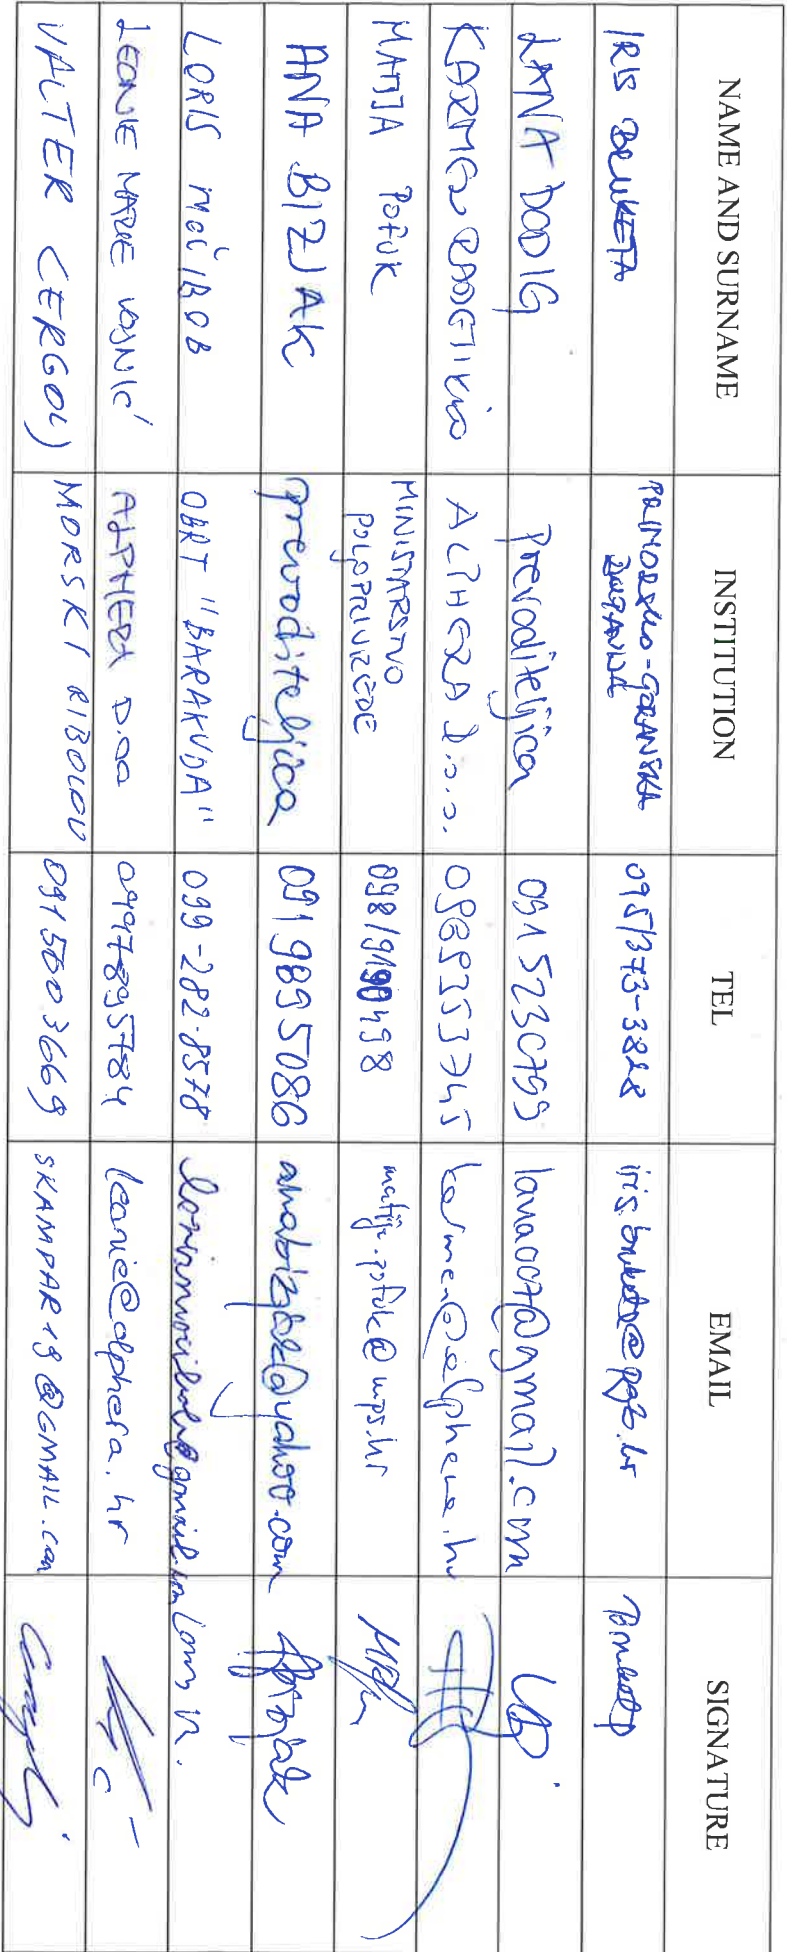 NAME AND SURNAME INSTITUTION TEL EMAIL SIGNATURE
IRIS BRUKETA PRIMORSKO-GORANSKA ŽUPANIJA 095/373-3828 iris.bruketa@pgz.hr
LANA DODIG Prevoditeljica 0915230799 lanaoct@gmail.com
KARMEN ALPHERA d.o.o. karmen@alphera.hr
MATIJA POFUK MINISTARSTVO POLJOPRIVREDE matija.pofuk@mps.hr
ANA BIZJAK prevoditeljica 0919895086 Bizjak
LORIS MOČIBOB OBRT "BARAKUDA" 099-282-8578 Loris M.
LEONIE MARIE VOJNIĆ ALPHERA D.O.O 0997895784 leonie@alphera.hr
VALTER CERGOLJ MORSKI RIBOLOV 0915003669 SKAMPAR19@GMAIL.COM